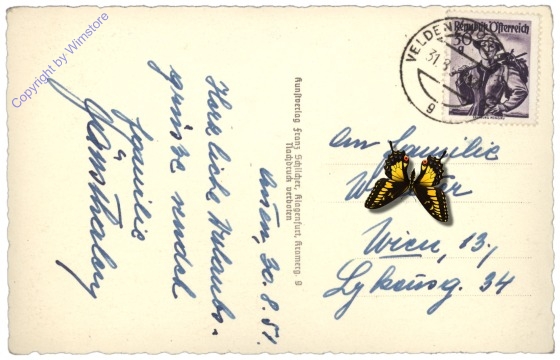 Copyright by Wimstore
30. 8. 51.
Herzliche Urlaubs-
grüsse sendet
Familie
Kunstverlag Franz Schilcher, Klagenfurt, Kramerg. 9
Nachdruck verboten
VELDEN
31.8
9
Republik Österreich
An Familie
Wien, 13.,
34